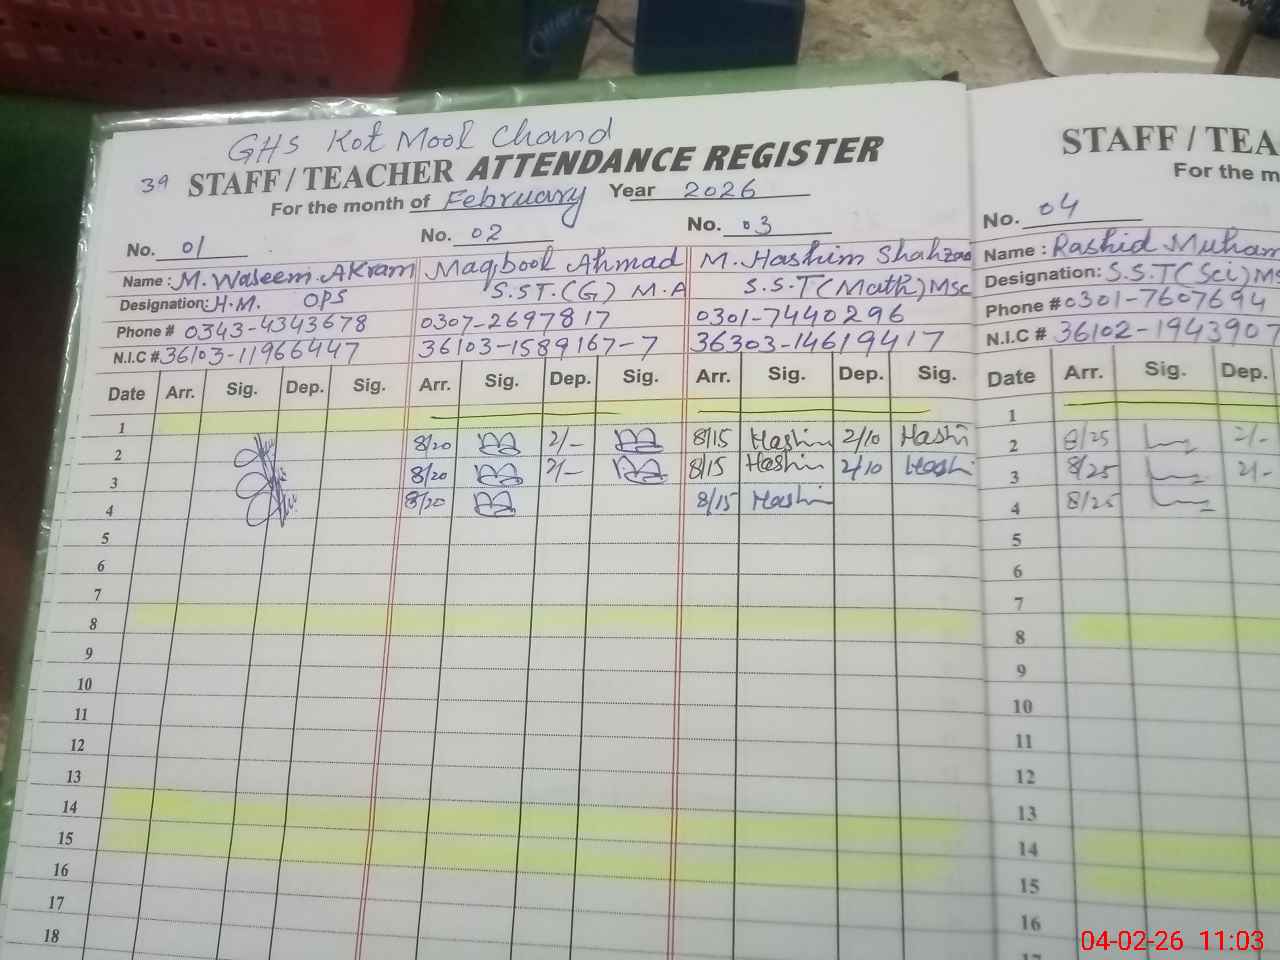 GHS Kot Mool Chand
39 STAFF / TEACHER ATTENDANCE REGISTER
For the month of February Year 2026
No. 01 No. 02 No. 03
Name : M. Waseem Akram Maqbool Ahmad M. Hashim Shahzad
Designation: H.M. OPS S.ST.(G) M.A S.S.T(Math) MSc
Phone # 0343-4343678 0307-2697817 0301-7440296
N.I.C # 36103-11966447 36103-1589167-7 36303-14619417
Date Arr. Sig. Dep. Sig. Arr. Sig. Dep. Sig. Arr. Sig. Dep. Sig.
1
2 8/20 2/- 8/15 Hashim 2/10 Hashi
3 8/20 2/- 8/15 Hashim 2/10 Hashi
4 8/20 8/15 Hashim
5
6
7
8
9
10
11
12
13
14
15
16
17
18
STAFF / TEA
For the m
No. 04
Name : Rashid Muham
Designation: S.S.T(Sci) MS
Phone # 0301-7607694
N.I.C # 36102-1943907
Date Arr. Sig. Dep.
1
2 8/25 2/-
3 8/25 2/-
4 8/25
5
6
7
8
9
10
11
12
13
14
15
16
17
04-02-26 11:03